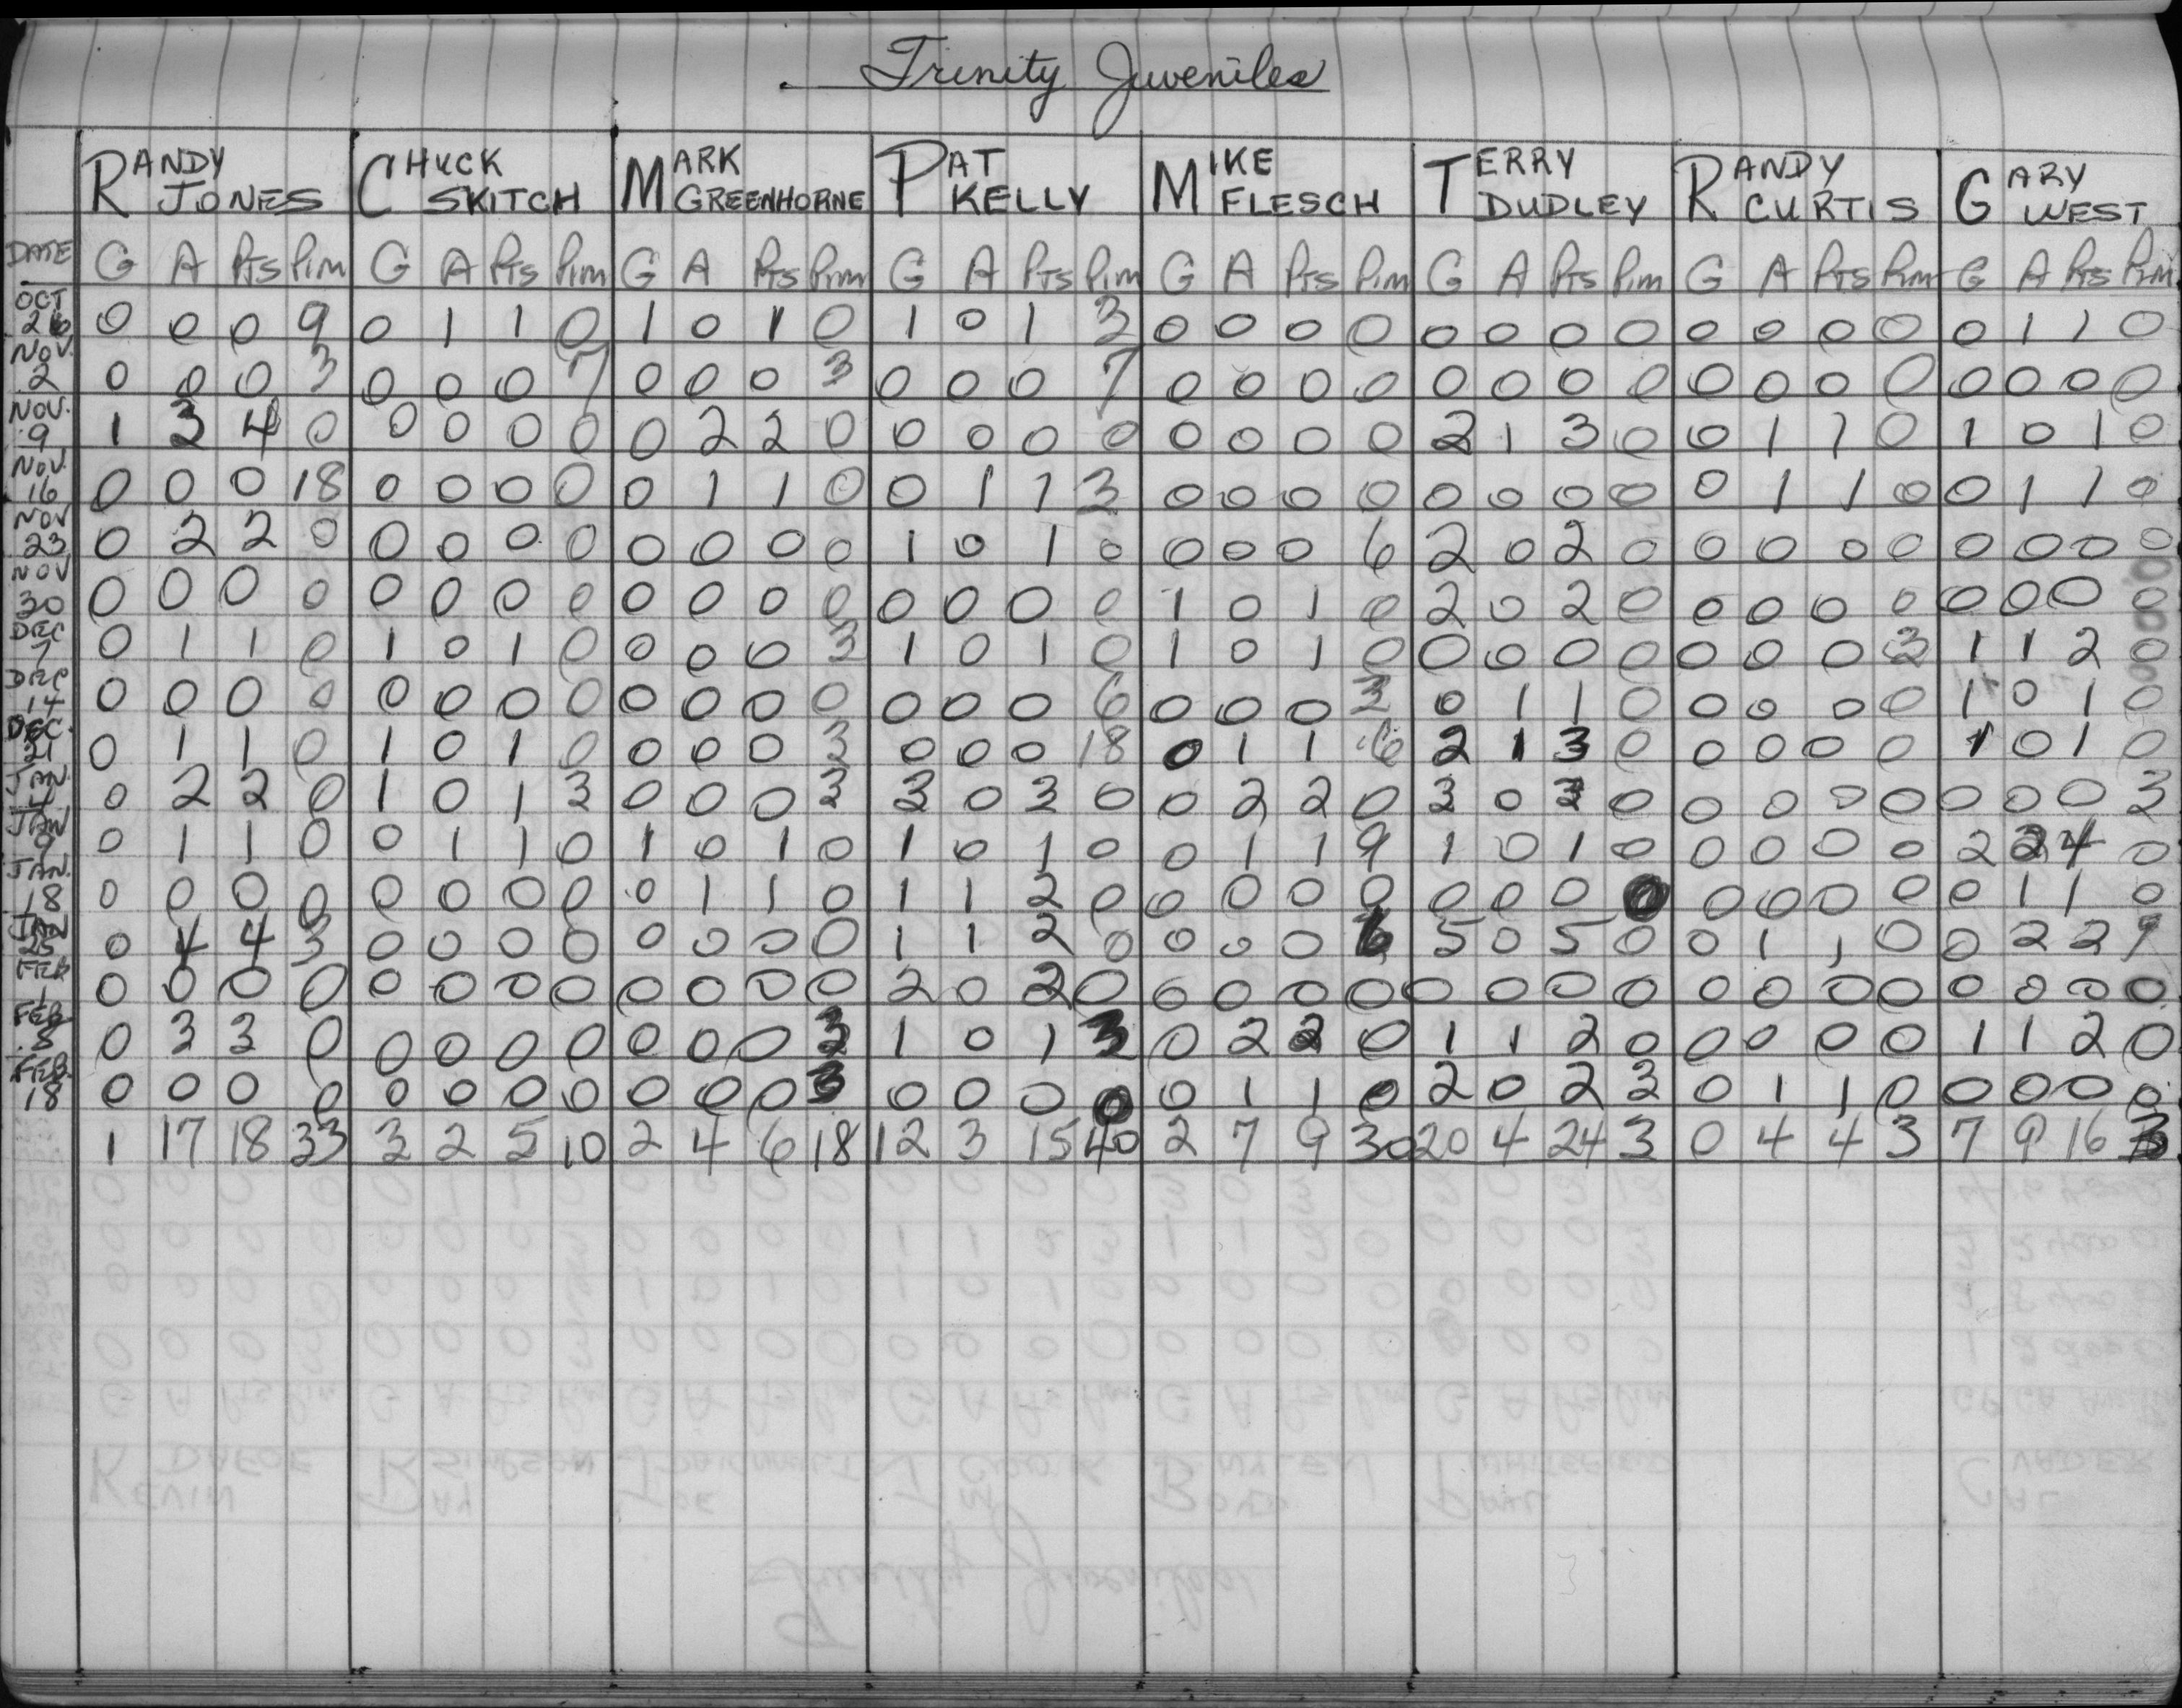 Trinity Juveniles
RANDY JONES CHUCK SKITCH MARK GREENHORNE PAT KELLY MIKE FLESCH TERRY DUDLEY RANDY CURTIS GARY WEST
DATE G A Pts Pim G A Pts Pim G A Pts Pim G A Pts Pim G A Pts Pim G A Pts Pim G A Pts Pim G A Pts Pim
OCT 26 0 0 0 9 0 1 1 0 1 0 1 0 1 0 1 3 0 0 0 0 0 0 0 0 0 0 0 0 0 1 1 0
NOV. 2 0 0 0 3 0 0 0 7 0 0 0 3 0 0 0 7 0 0 0 0 0 0 0 0 0 0 0 0 0 0 0 0
NOV. 9 1 3 4 0 0 0 0 0 0 2 2 0 0 0 0 0 0 0 0 0 2 1 3 0 0 1 1 0 1 0 1 0
NOV. 16 0 0 0 18 0 0 0 0 0 1 1 0 0 1 1 3 0 0 0 0 0 0 0 0 0 1 1 0 0 1 1 0
NOV 23 0 2 2 0 0 0 0 0 0 0 0 0 1 0 1 0 0 0 0 6 2 0 2 0 0 0 0 0 0 0 0 0
NOV 30 0 0 0 0 0 0 0 0 0 0 0 0 0 0 0 0 1 0 1 0 2 0 2 0 0 0 0 0 0 0 0 0
DEC 7 0 1 1 0 1 0 1 0 0 0 0 3 1 0 1 0 1 0 1 0 0 0 0 0 0 0 0 3 1 1 2 0
DEC 14 0 0 0 0 0 0 0 0 0 0 0 0 0 0 0 6 0 0 0 3 0 1 1 0 0 0 0 0 1 0 1 0
DEC. 21 0 1 1 0 1 0 1 0 0 0 0 3 0 0 0 18 0 1 1 6 2 1 3 0 0 0 0 0 1 0 1 0
JAN. 4 0 2 2 0 1 0 1 3 0 0 0 3 3 0 3 0 0 2 2 0 3 0 3 0 0 0 0 0 0 0 0 3
JAN 9 0 1 1 0 0 1 1 0 1 0 1 0 1 0 1 0 0 1 1 9 1 0 1 0 0 0 0 0 2 2 4 0
JAN. 18 0 0 0 0 0 0 0 0 0 1 1 0 1 1 2 0 0 0 0 0 0 0 0 0 0 0 0 0 0 1 1 0
JAN 25 0 4 4 3 0 0 0 0 0 0 0 0 1 1 2 0 0 0 0 6 5 0 5 0 0 1 1 0 0 2 2 9
FEB 1 0 0 0 0 0 0 0 0 0 0 0 0 2 0 2 0 0 0 0 0 0 0 0 0 0 0 0 0 0 0 0 0
FEB. 8 0 3 3 0 0 0 0 0 0 0 0 3 1 0 1 3 0 2 2 0 1 1 2 0 0 0 0 0 1 1 2 0
FEB. 18 0 0 0 0 0 0 0 0 0 0 0 3 0 0 0 0 0 1 1 0 2 0 2 3 0 1 1 0 0 0 0 0
1 17 18 33 3 2 5 10 2 4 6 18 12 3 15 40 2 7 9 30 20 4 24 3 0 4 4 3 7 9 16